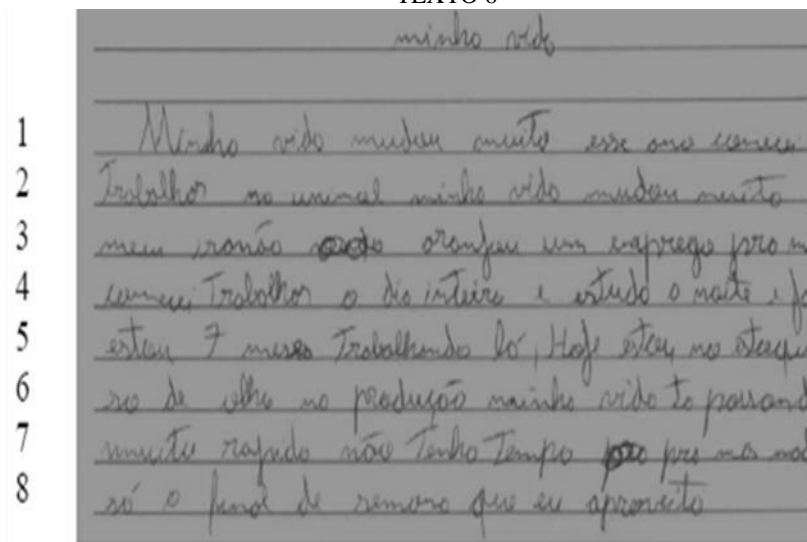 TEXTO
minha vida
1 Minha vida mudou muito esse ano comecei
2 Trabalhar no minha vida mudou muito
3 meu aranjou um emprego pro m
4 comecei Trabalhar o dia inteiro e estudo a noite e fa
5 estou 7 meses Trabalhando lá, Hoje estou no
6 so de olho na produção minha vida ta passand
7 muito rapido não Tenho Tempo pra mas nad
8 só o final de semana que eu aproveito